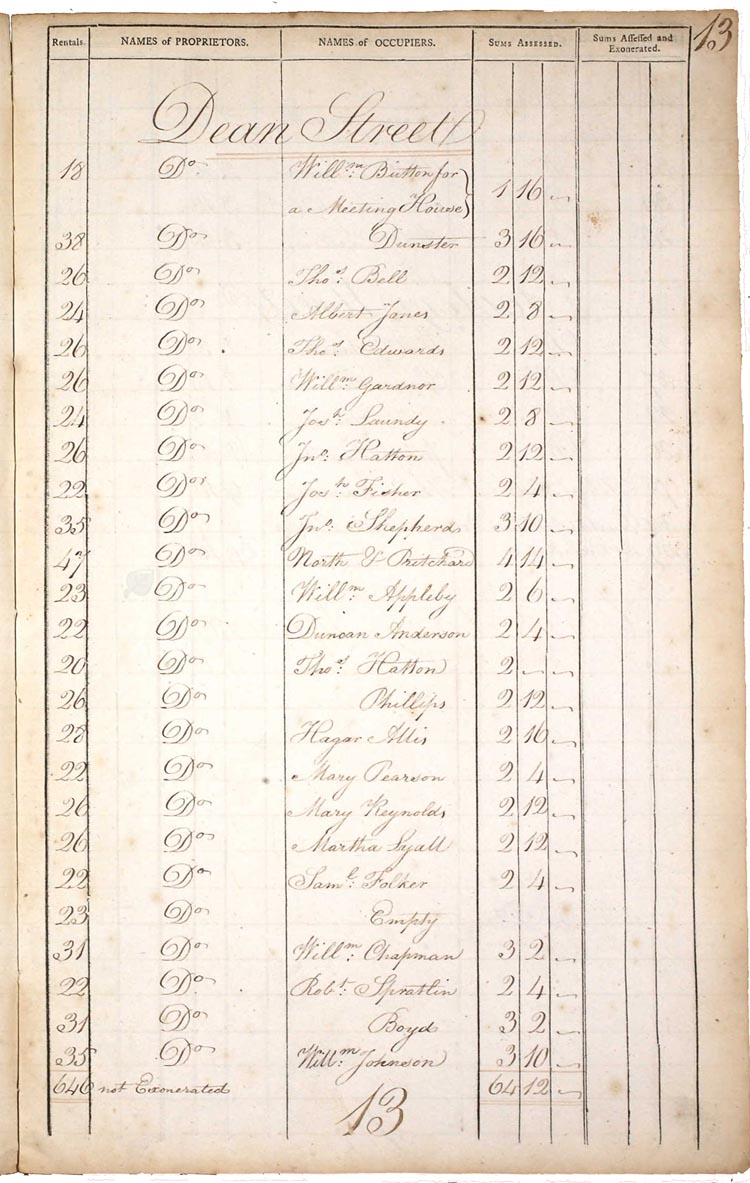 13
Rentals. NAMES of PROPRIETORS. NAMES of OCCUPIERS. SUMS ASSESSED. Sums Assessed and Exonerated.
Dean Street
18 Do Willm. Button for
a Meeting House 1 16 —
38 Do Dunster 3 16 —
26 Do Thos. Bell 2 12 —
24 Do Albert Janes 2 8 —
26 Do Thos. Edwards 2 12 —
26 Do Willm. Gardnor 2 12 —
24 Do Josh. Laundy 2 8 —
26 Do Jno. Hatton 2 12 —
22 Do Josh. Fisher 2 4 —
35 Do Jno. Shepherd 3 10 —
47 Do North & Pritchard 4 14 —
23 Do Willm. Appleby 2 6 —
22 Do Duncan Anderson 2 4 —
20 Do Thos. Hatton 2 — —
26 Do Phillips 2 12 —
28 Do Hagar Allis 2 16 —
22 Do Mary Pearson 2 4 —
26 Do Mary Reynolds 2 12 —
26 Do Martha Lyall 2 12 —
22 Do Saml. Folker 2 4 —
23 Do Empty
31 Do Willm. Chapman 3 2 —
22 Do Robt. Sprattin 2 4 —
31 Do Boyd 3 2 —
35 Do Willm. Johnson 3 10 —
646 not Exonerated 64 12 —
13